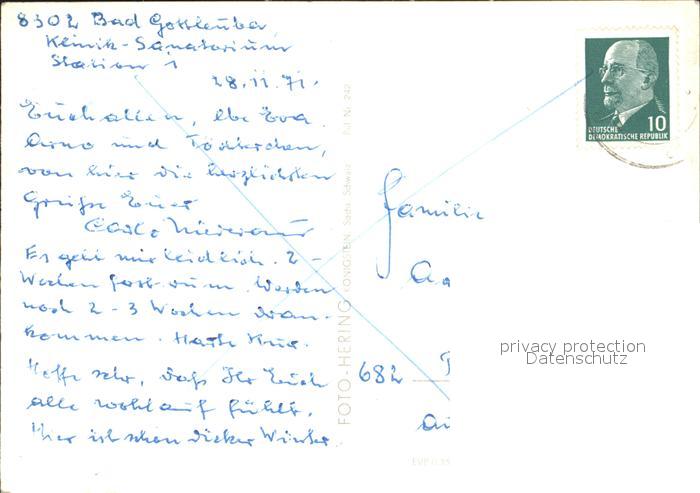 8302 Bad Gottleuba
Klinik-Sanatorium
Station 1
28.11.71.
Euch allen, lbe Eva
Arno und Töchterchen,
von hier die herzlichsten
Grüße Euer
Carl-
Es geht mir leidlich. 2
Wochen fast rum. Werden
noch 2-3 Wochen dran-
kommen. Harte Kur.
Hoffe sehr, daß Ihr Euch
alle wohlauf fühlt.
Hier ist schon dicker Winter.
FOTO-HERING KÖNIGSTEIN, Sächs. Schweiz Bd Nr. 242
EVP 0.35
DEUTSCHE
DEMOKRATISCHE REPUBLIK
10
Familie
682
privacy protection
Datenschutz